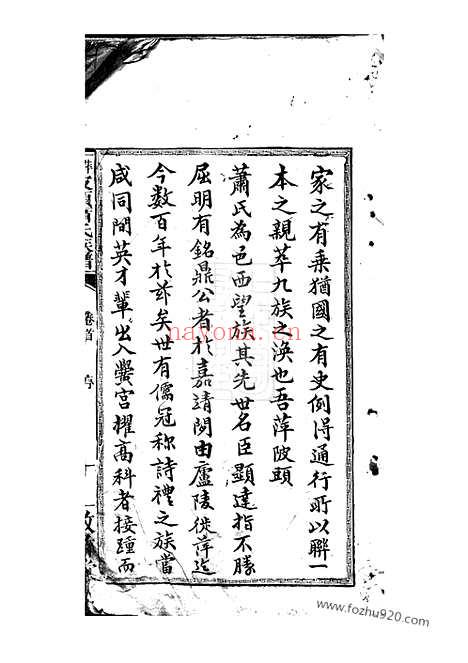 家之有乘猶國之有史例得通行所以聯一
本之親萃九族之渙也吾萍陂頭
蕭氏為邑西望族其先世名臣顯達指不勝
屈明有銘鼎公者於嘉靖間由廬陵徙萍迄
今数百年於茲矣世有儒冠称詩禮之族當
咸同間英才輩出入黌宮擢高科者接踵而
氏族譜
卷首
序
nayona.cn
www.fozhu920.com